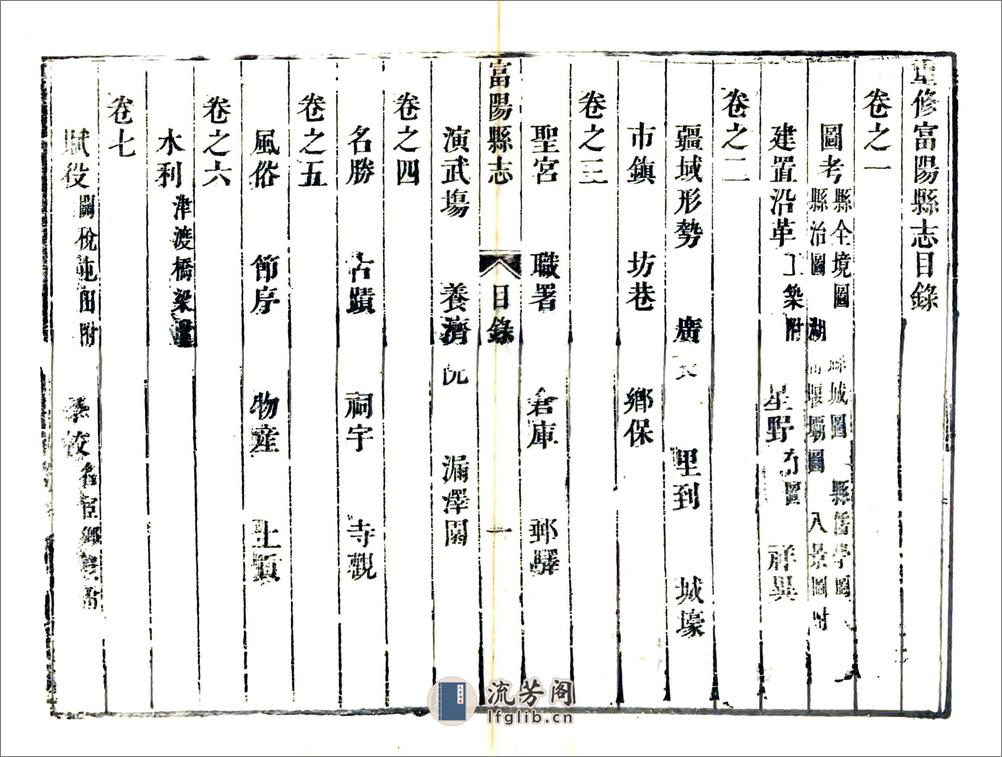 重修富陽縣志目錄
卷之一
圖考 縣全境圖 縣城圖 縣儒學圖
縣治圖 湖 堰壩圖 八景圖附
建置沿革 工築附 星野 圖 祥異
卷之二
疆域形勢 廣 里到 城壕
市鎮 坊巷 鄉保
卷之三
聖宮 職署 倉庫 郵驛
富陽縣志 目錄 一
演武塲 養濟院 漏澤園
卷之四
名勝 古蹟 祠宇 寺觀
卷之五
風俗 節序 物產 土
卷之六
水利 津渡橋梁
卷七
賦役 附 學校 名宦鄉
流芳阁
lfglib.cn